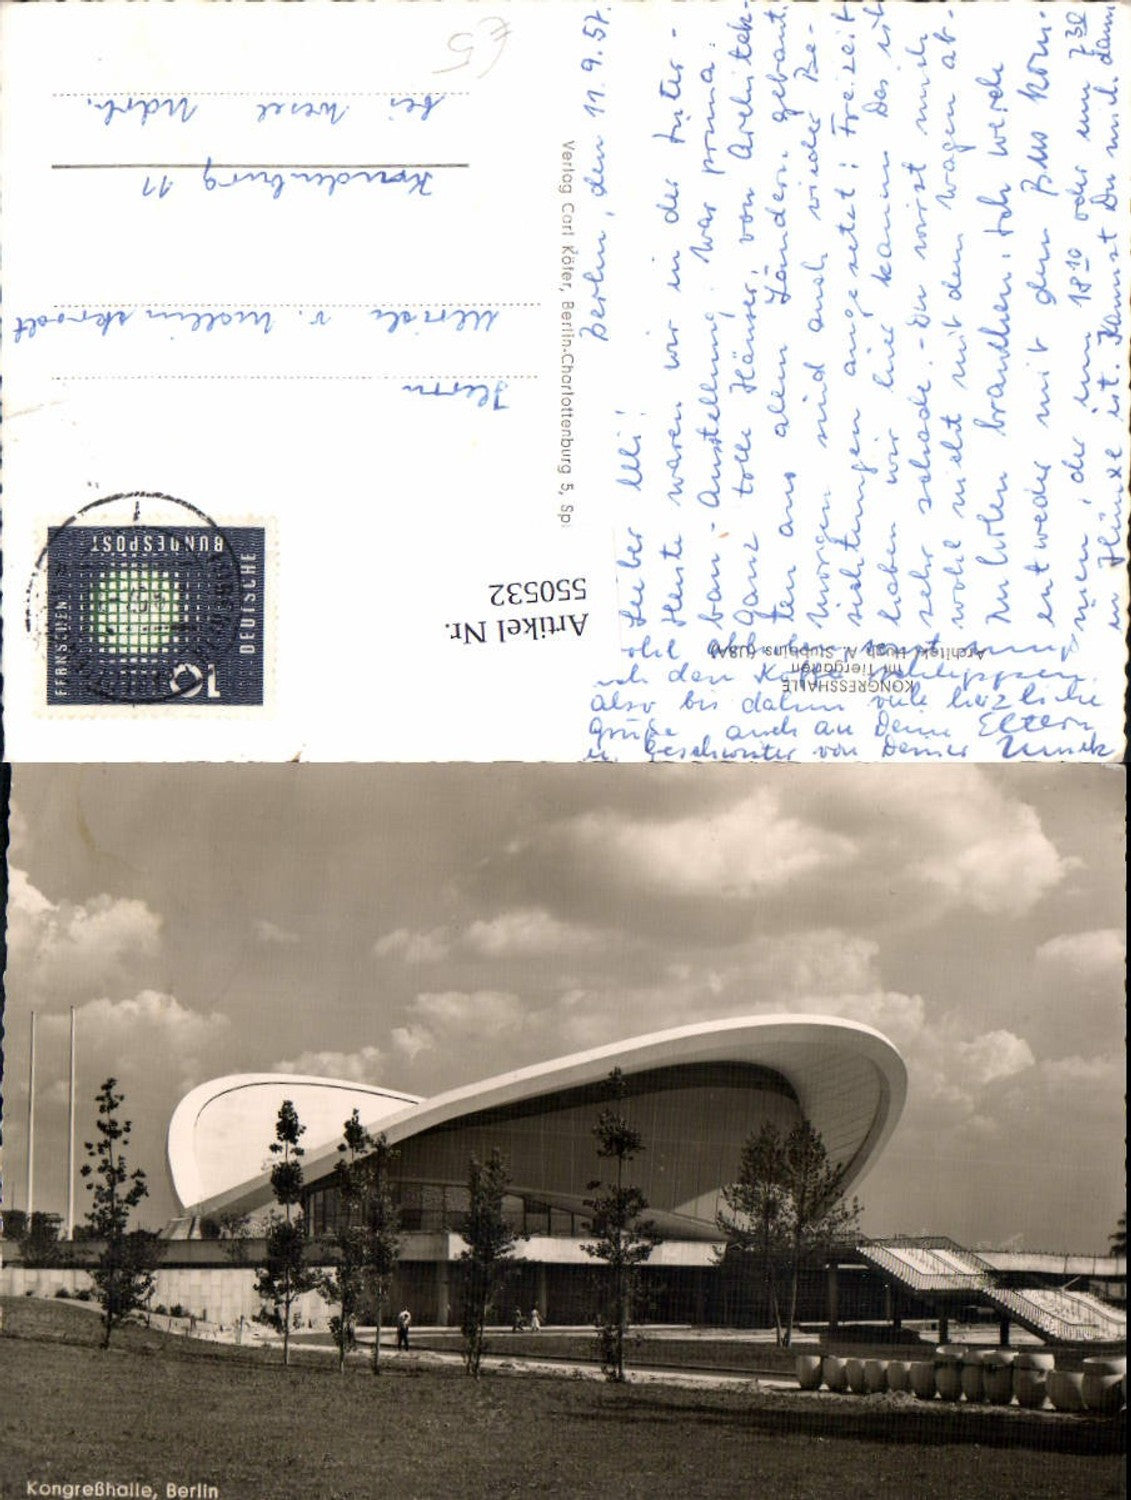 Berlin, den 11.9.57.
Lieber Ulli!
Heute waren wir in der Inter-
bau-Ausstellung, war prima.
Ganz tolle Häuser, von Architek-
ten aus allen Ländern gebaut.
Morgen sind auch wieder Be-
sichtungen angesetzt; Freizeit
haben wir hier kaum. Das ist
sehr schade. - Du wirst mich
wohl nicht mit dem Wagen ab-
zuholen brauchen. Ich werde
entweder mit dem Bus kom-
men, der um 18 10 oder um 7 30
in Hünxe ist. Kannst Du mich dann
den
also bis dahin viele herzliche
Grüße, auch an Deine Eltern
u. Geschwister von Deiner
KONGRESSHALLE
im Tiergarten
Architekt Hugh A. Stubbins (USA)
Verlag Carl Köfer, Berlin-Charlottenburg 5, Sp
Herrn
Ulrich v.
11
bei Wesel Ndrh.
€5
Artikel Nr.
550532
DEUTSCHE
BUNDESPOST
FERNSEHEN
10
Kongreßhalle, Berlin